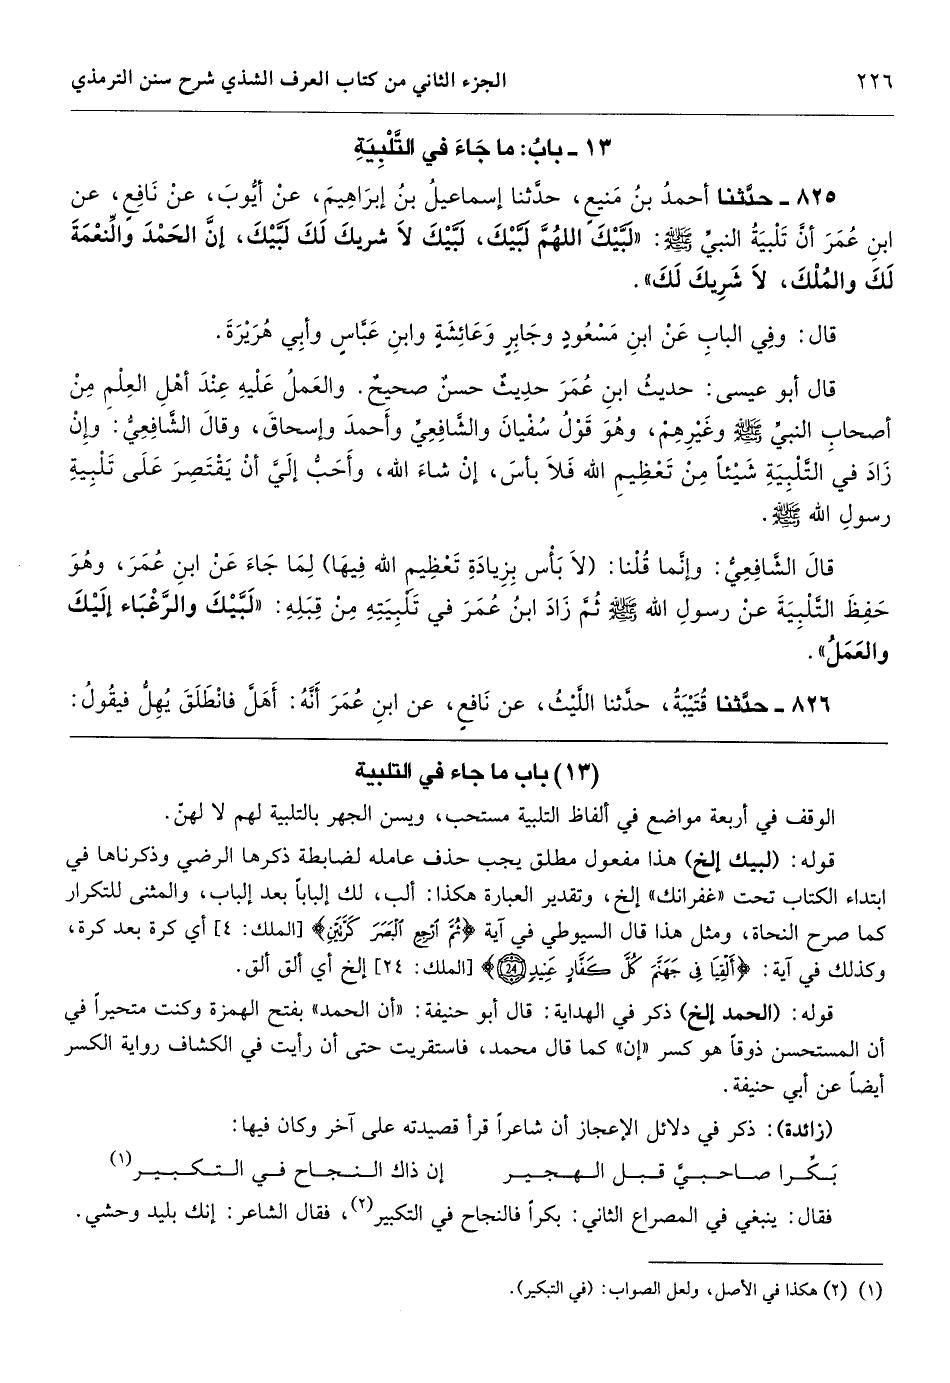 ٢٢٦ الجزء الثاني من كتاب العرف الشذي شرح سنن الترمذي
١٣ ـ بابُ: ما جَاءَ في التَّلْبِيَةِ
٨٢٥ ـ حدَّثنا أحمدُ بنُ مَنيعٍ، حدَّثنا إسماعيلُ بنُ إبرَاهِيمَ، عنْ أيُّوبَ، عنْ نَافِعٍ، عن
ابنِ عُمَرَ أنَّ تَلْبِيَةُ النبيِّ ﷺ: «لَبَّيْكَ اللهُمَّ لَبَّيْكَ، لَبَّيْكَ لاَ شريكَ لَكَ لَبَّيْكَ، إنَّ الحَمْدَ والنِّعْمَةَ
لَكَ والمُلْكَ، لاَ شَرِيكَ لَكَ».
قال: وفِي البابِ عَنْ ابنِ مَسْعُودٍ وجَابِرٍ وَعَائِشَةٍ وابنِ عَبَّاسٍ وأبِي هُرَيْرَةَ.
قال أبو عيسى: حديثُ ابنِ عُمَرَ حدِيثٌ حسنٌ صحيحٌ. والعَملُ عَلَيْهِ عِنْدَ أهْلِ العِلْمِ مِنْ
أصحابِ النبيِّ ﷺ وغَيْرِهِمْ، وهُوَ قَوْلُ سُفْيانَ والشَّافِعيِّ وأحمدَ وإسحاقَ، وقالَ الشَّافِعيُّ: وإنْ
زَادَ في التَّلْبِيَةِ شَيْئاً مِنْ تَعْظِيمِ الله فَلاَ بأسَ، إنْ شاءَ الله، وأحَبُّ إليَّ أنْ يَقْتَصِرَ عَلَى تَلْبِيةِ
رسولِ الله ﷺ.
قالَ الشَّافِعيُّ: وإنَّما قُلْنا: (لاَ بَأْس بِزِيادَةِ تَعْظِيمِ الله فِيهَا) لِمَا جَاءَ عَنْ ابنِ عُمَرَ، وهُوَ
حَفِظَ التَّلْبِيَةَ عنْ رسولِ الله ﷺ ثُمَّ زَادَ ابنُ عُمَرَ في تَلْبِيَتِهِ مِنْ قِبَلِهِ: «لَبَّيْكَ والرَّغْبَاء إلَيْكَ
والعَمَلُ».
٨٢٦ ـ حدَّثنا قُتَيْبَةُ، حدَّثنا اللَّيْثُ، عن نَافِعٍ، عن ابنِ عُمَرَ أنَّهُ: أَهَلَّ فانْطَلَقَ يُهِلُّ فيقُولُ:
(١٣) باب ما جاء في التلبية
الوقف في أربعة مواضع في ألفاظ التلبية مستحب، ويسن الجهر بالتلبية لهم لا لهنّ.
قوله: (لبيك إلخ) هذا مفعول مطلق يجب حذف عامله لضابطة ذكرها الرضي وذكرناها في
ابتداء الكتاب تحت «غفرانك» إلخ، وتقدير العبارة هكذا: ألب، لك إلباباً بعد إلباب، والمثنى للتكرار
كما صرح النحاة، ومثل هذا قال السيوطي في آية ﴿ثُمَّ ٱرْجِعِ ٱلْبَصَرَ كَرَّتَيْنِ﴾ [الملك: ٤] أي كرة بعد كرة،
وكذلك في آية: ﴿أَلْقِيَا فِي جَهَنَّمَ كُلَّ كَفَّارٍ عَنِيدٍ 24﴾ [الملك: ٢٤] إلخ أي ألق ألق.
قوله: (الحمد إلخ) ذكر في الهداية: قال أبو حنيفة: «أن الحمد» بفتح الهمزة وكنت متحيراً في
أن المستحسن ذوقاً هو كسر «إن» كما قال محمد، فاستقريت حتى أن رأيت في الكشاف رواية الكسر
أيضاً عن أبي حنيفة.
(زائدة): ذكر في دلائل الإعجاز أن شاعراً قرأ قصيدته على آخر وكان فيها:
بَكِّرا صاحبيَّ قبل الهجير إن ذاك النجاح في التكبير(١)
فقال: ينبغي في المصراع الثاني: بكراً فالنجاح في التكبير(٢)، فقال الشاعر: إنك بليد وحشي.
(١) (٢) هكذا في الأصل، ولعل الصواب: (في التبكير).